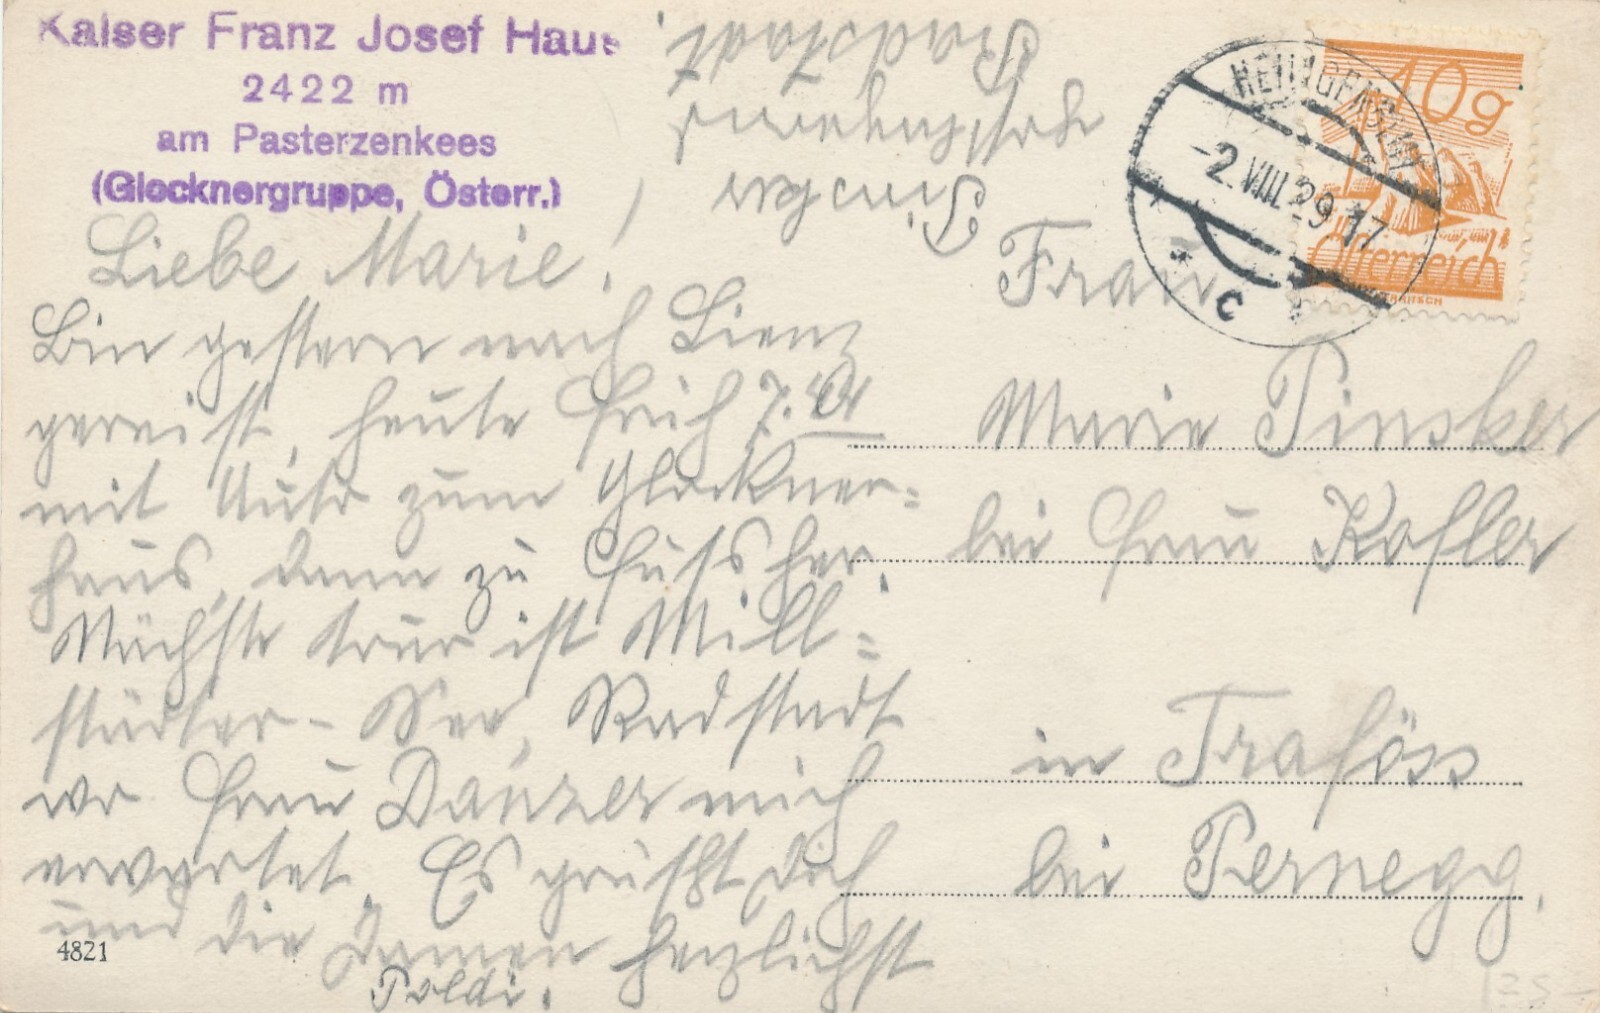 Kaiser Franz Josef Haus
2422 m
am Pasterzenkees
(Glocknergruppe, Österr.)
Liebe Marie!
Bin gestern nach Lienz
gereist, heute früh 7.
mit Auto zum Glockner=
haus, dann zu Fuß her.
Nächste Tour ist Mill=
städter-See, Radstadt
wo Frau Danzer mich
erwartet. Es grüßt dich
und die Damen herzlichst
Poldi.
4821
Radstadt
HEILIGENBLUT
-2.VIII.29 17
* C *
10g
Österreich
Frau
Marie Pinsker
bei Frau Kofler
in Traföss
bei Pernegg.
25-